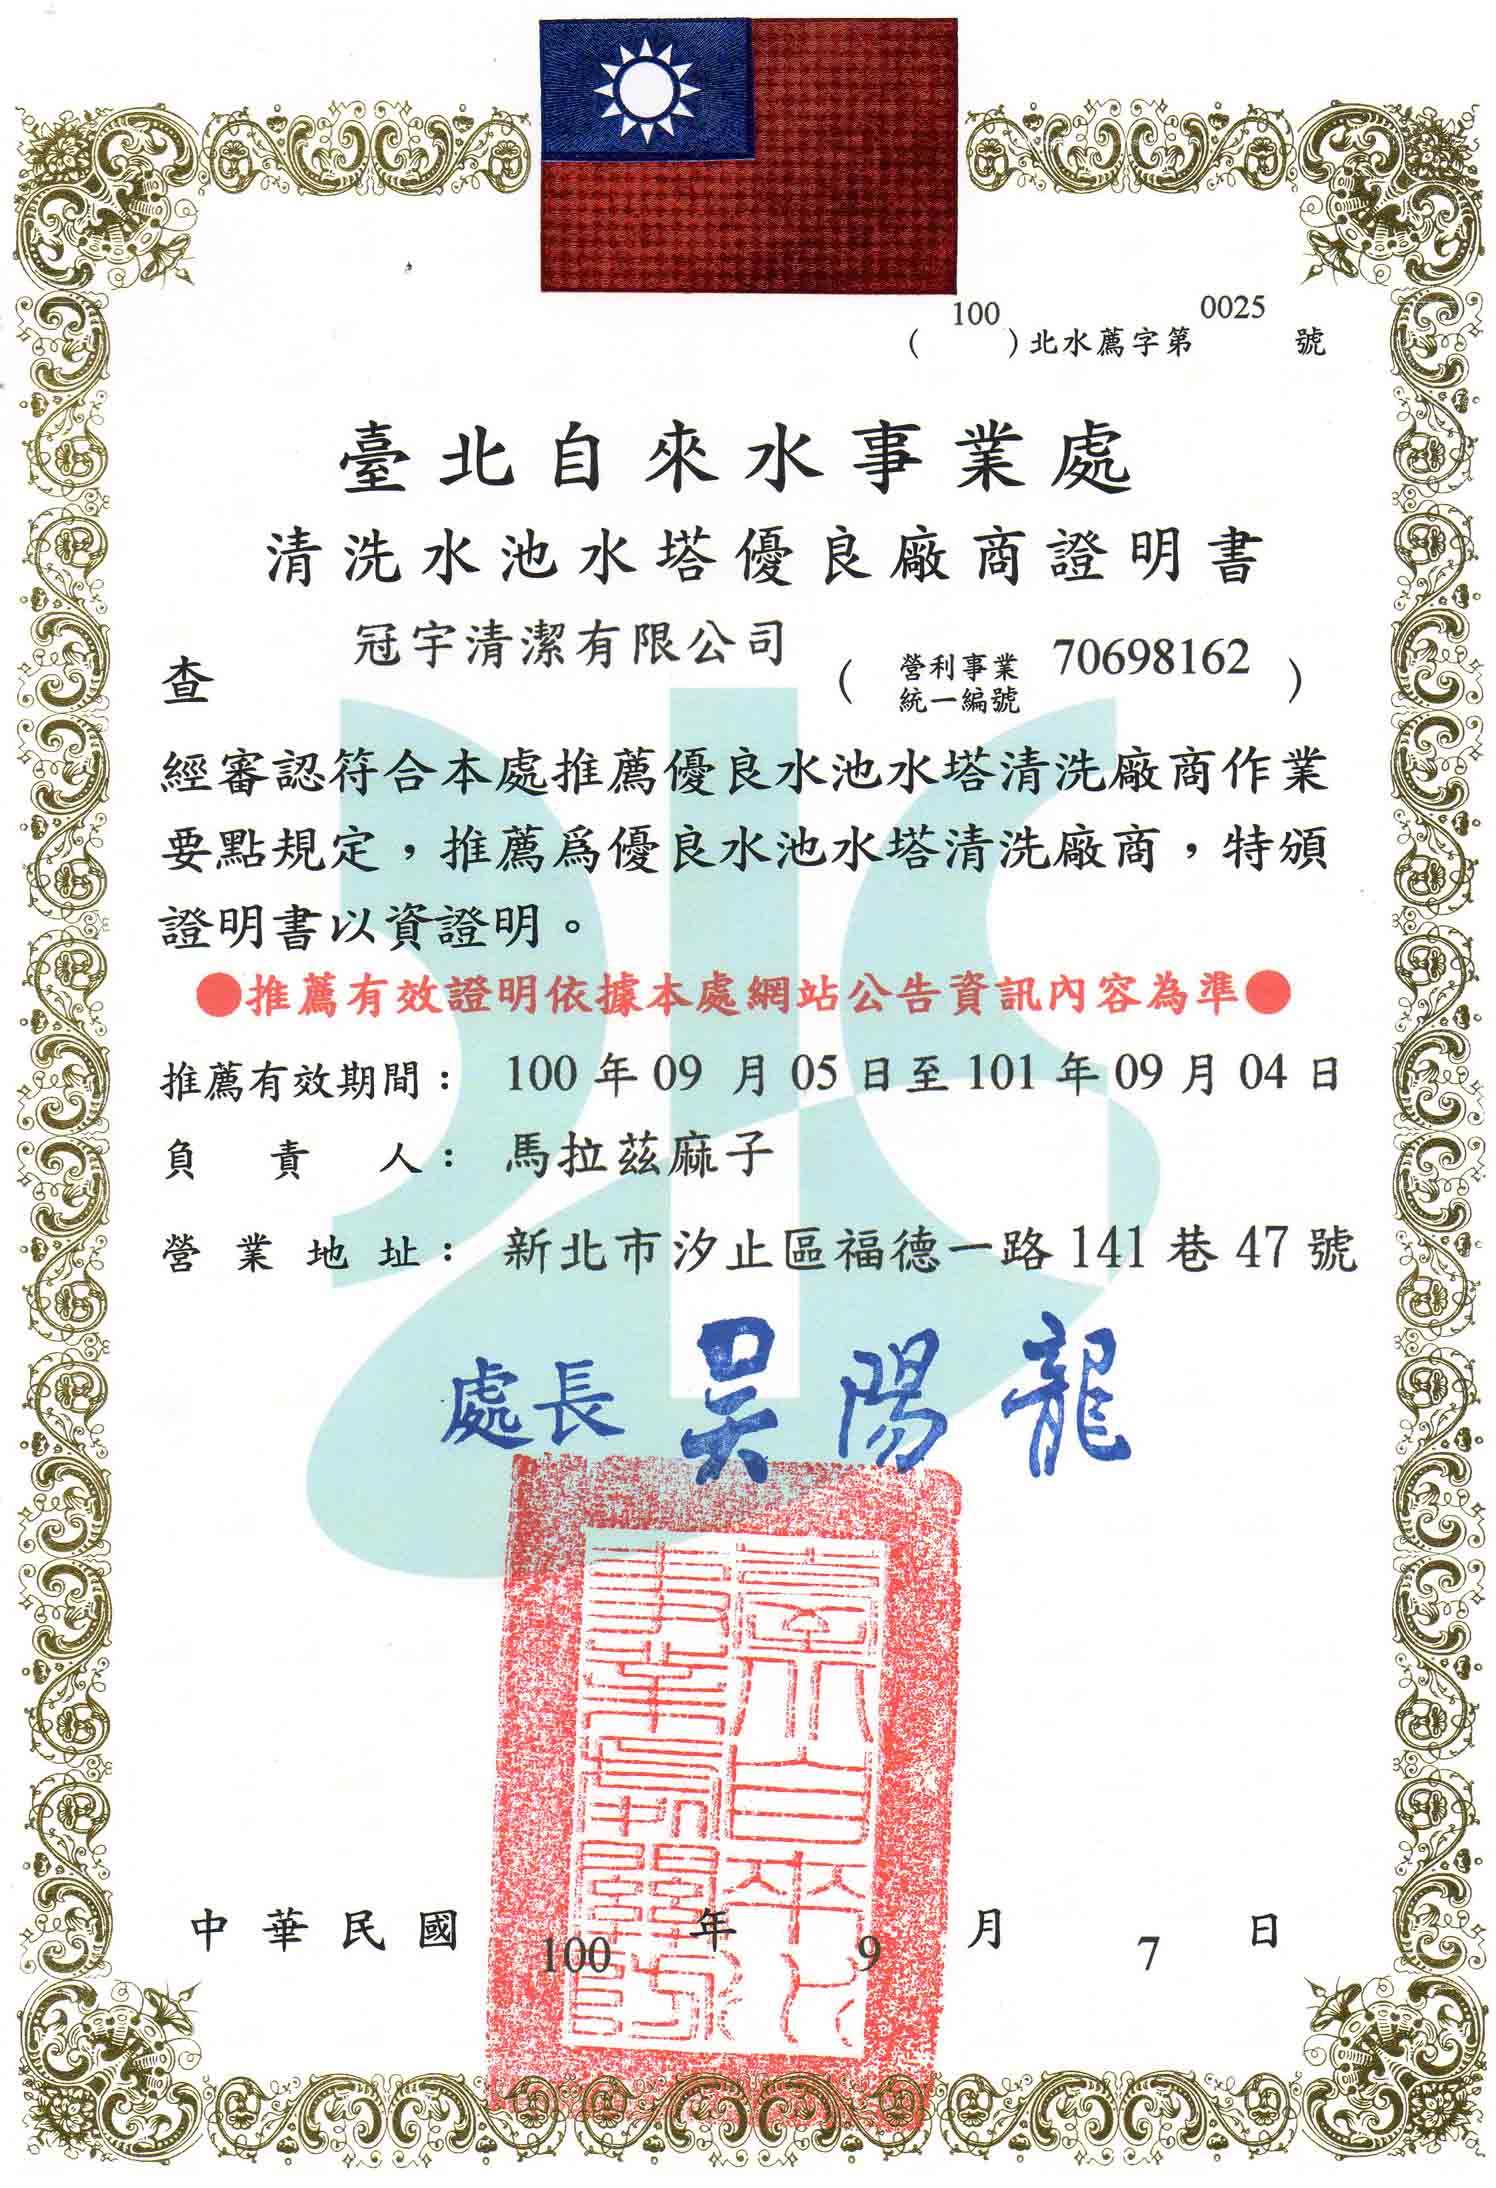 (100)北水薦字第0025號
臺北自來水事業處
清洗水池水塔優良廠商證明書
查 冠宇清潔有限公司 (營利事業統一編號 70698162)
經審認符合本處推薦優良水池水塔清洗廠商作業
要點規定，推薦爲優良水池水塔清洗廠商，特頒
證明書以資證明。
●推薦有效證明依據本處網站公告資訊內容為準●
推薦有效期間：100年09月05日至101年09月04日
負責人：馬拉茲麻子
營業地址：新北市汐止區福德一路141巷47號
處長 吳陽龍
中華民國100年9月7日